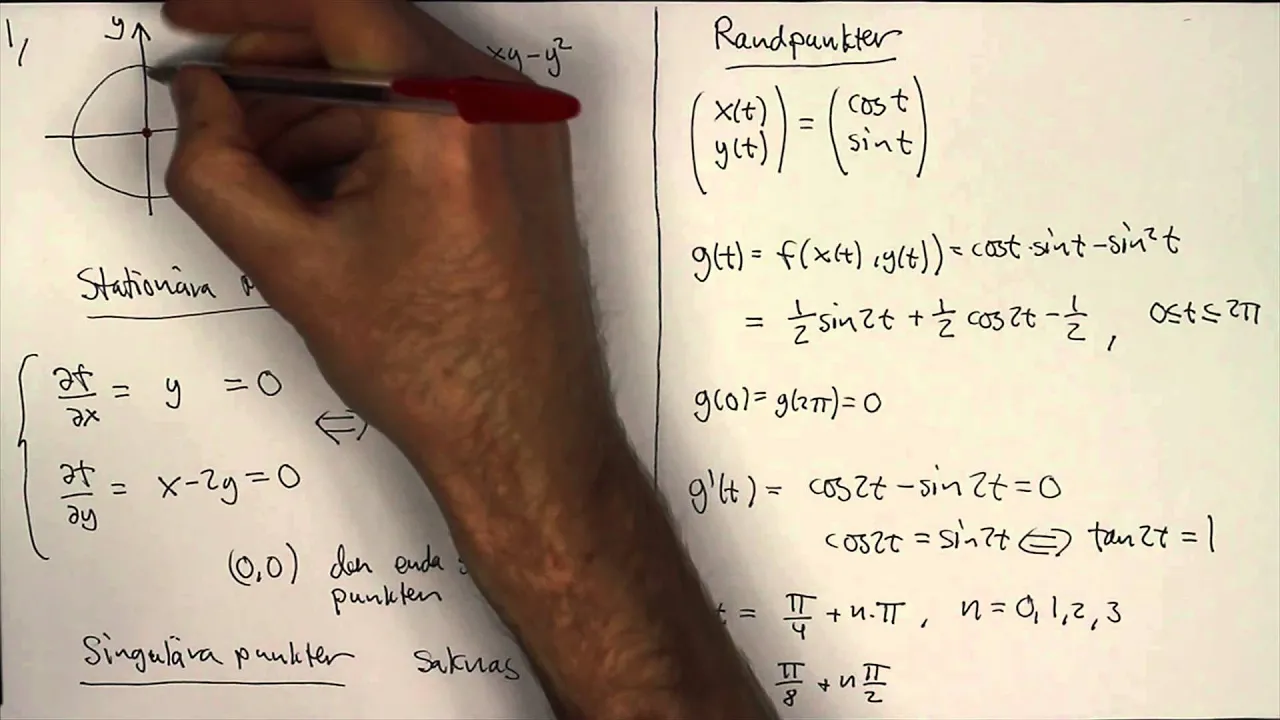 1,
y
xy - y²
Stationära
∂f/∂x = y = 0
⇔
∂f/∂y = x - 2y = 0
(0,0) den enda
punkten
Singulära punkter saknas
Randpunkter
(x(t) y(t)) = (cos t sin t)
g(t) = f(x(t), y(t)) = cos t · sin t - sin² t
= 1/2 sin 2t + 1/2 cos 2t - 1/2 , 0 ≤ t ≤ 2π
g(0) = g(2π) = 0
g'(t) = cos 2t - sin 2t = 0
cos 2t = sin 2t ⇔ tan 2t = 1
t = π/4 + n·π , n = 0, 1, 2, 3
π/8 + n π/2